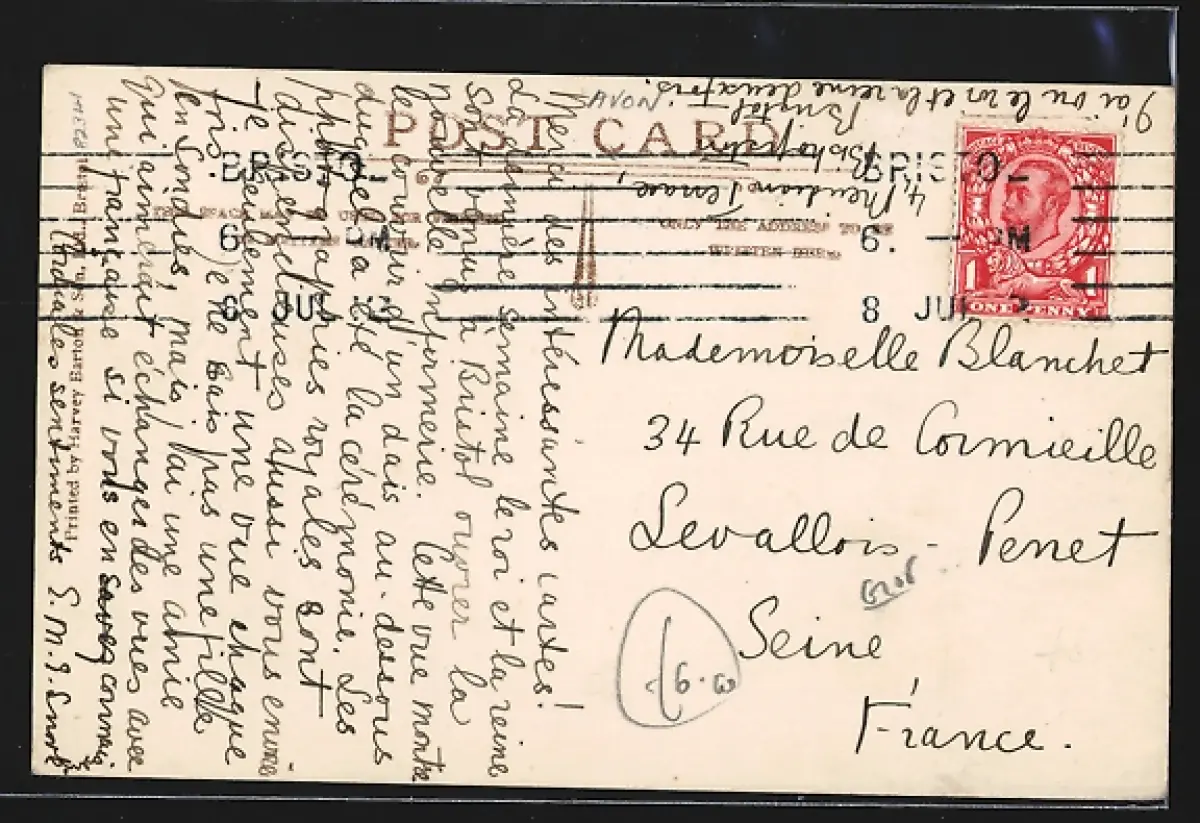 J'ai vu le roi et la reine deux fois.
4, Meridian Terrace,
Bishopston
Bristol
AVON
POST CARD
ONLY THE ADDRESS TO BE
WRITTEN HERE.
BRISTOL
6. PM
8 JUL
BRISTOL
6. PM
8 JUL
ONE PENNY
1 1
Merci des intéressantes cartes!
La dernière semaine le roi et la reine
sont venus à Bristol ouvrer la
nouvelle Infirmerie. Cette vue montre
le couvoir d'un dais au-dessous
duquel a été la cérémonie. Les
photographies royales sont
dispendieuses aussi vous envoie
-je seulement une vue chaque
fois. Je ne sais pas une fille
en Londres, mais j'ai une amie
qui aimerait échanger des vues avec
une française si vous en savez connais
Amicales sentiments S. M. E.
Printed by Harvey Barton & Son, Ltd., Bristol
Mademoiselle Blanchet
34 Rue de Cormieille
Levallois - Perret
Seine
France.
6.00